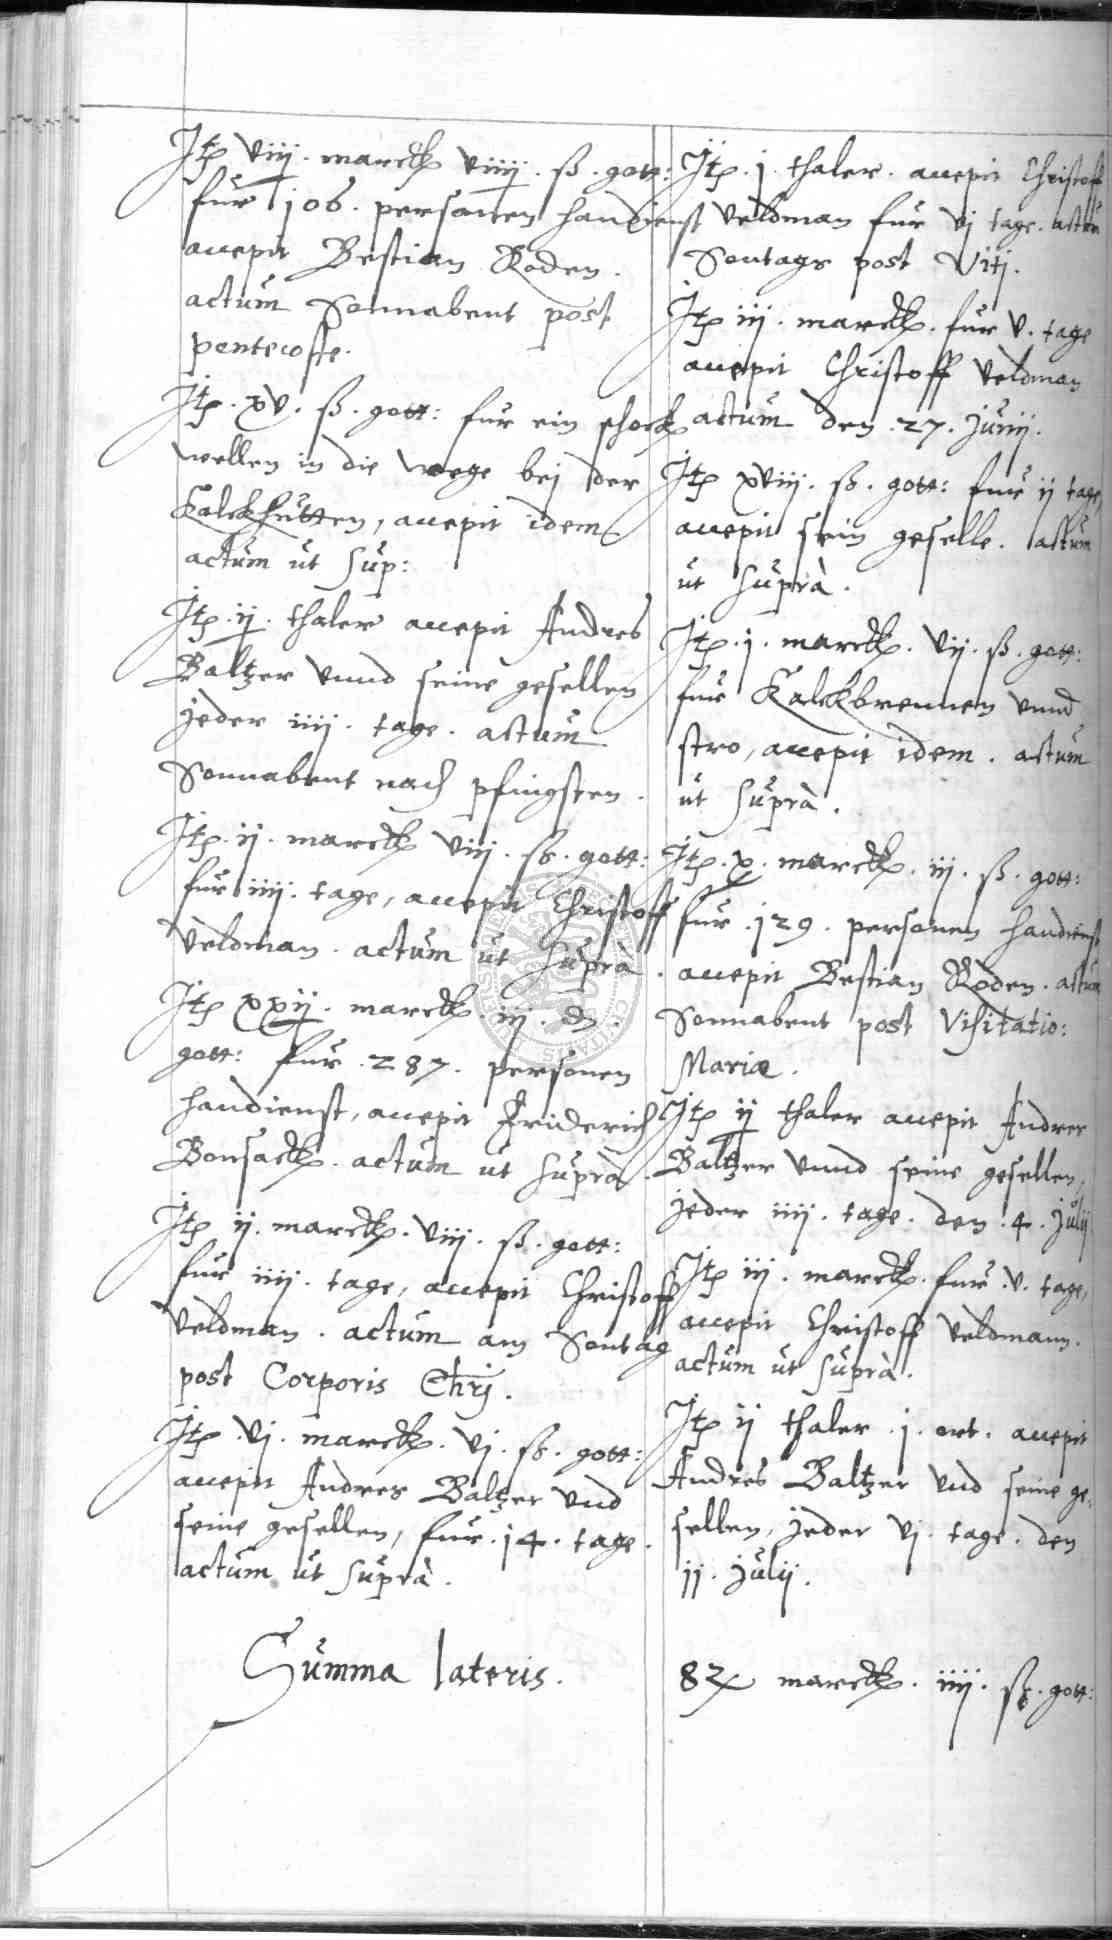 Jtp viij. marck viiij. ß. gott:
fur 106. personen handienst
accepit Bestian Roden.
actum Sonnabent post
pentecoste.
Jtp. xv. ß. gott: fur ein schock
wellen in die wege bej der
Kalckhutten, accepit idem
actum ut sup:
Jtp. ij. thaler accepit Andres
Baltzer vnnd seine gesellen
jeder iiij. tage. actum
Sonnabent nach pfingsten.
Jtp. ij. marck viij. ß. gott:
fur iiij. tage, accepit Christoff
Veldman. actum ut suprà.
Jtp xxij. marck. iij. d.
gott: fur . 287. personen
handienst, accepit Friderich
Bonsack. actum ut suprà.
Jtp ij. marck. viij. ß. gott:
fur iiij. tage, accepit Christoff
Veldman. actum am Sontag
post Corporis Chrj.
Jtp. vj. marck. vj. ß. gott:
accepit Andres Baltzer vnd
seine gesellen, fur. 14. tage.
actum ut suprà.
Summa lateris.
Jtp. j. thaler. accepit Christoff
Veldman fur vj tage. actum
Sontags post Vitj.
Jtp iij. marck. fur v. tage
accepit Christoff Veldman
actum den . 27. Junij.
Jtp xviij. ß. gott: fur ij tage,
accepit sein geselle. actum
ut suprà.
Jtp. j. marck. vij. ß. gott:
fur Kalckbrennen vnnd
stro, accepit idem. actum
ut suprà.
Jtp. x. marck. iij. ß. gott:
fur. 129. personen handienst
accepit Bestian Roden. actum
Sonnabent post Visitatio:
Mariæ.
Jtp ij thaler accepit Andres
Baltzer vnnd seine gesellen,
jeder iiij. tage. den . 4. Julij
Jtp iij. marck. fur . v. tage,
accepit Christoff Veldmann.
actum ut suprà.
Jtp ij thaler. j. ort. accepit
Andres Baltzer vnd seine ge-
sellen, jeder vj. tage. den
11. Julij.
82 marck. iiij. ß. gott: